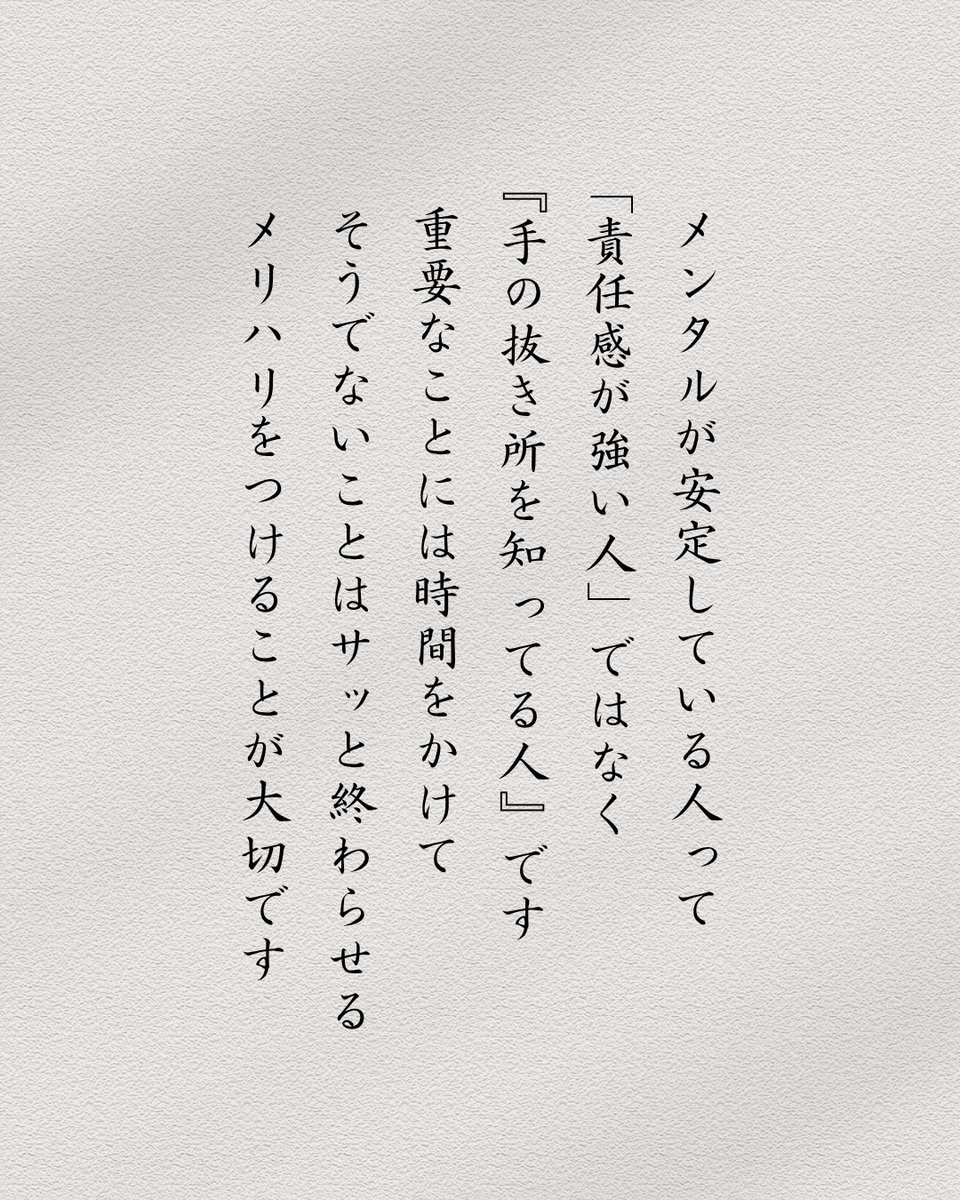 メンタルが安定している人って
「責任感が強い人」ではなく
『手の抜き所を知ってる人』です
重要なことには時間をかけて
そうでないことはサッと終わらせる
メリハリをつけることが大切です